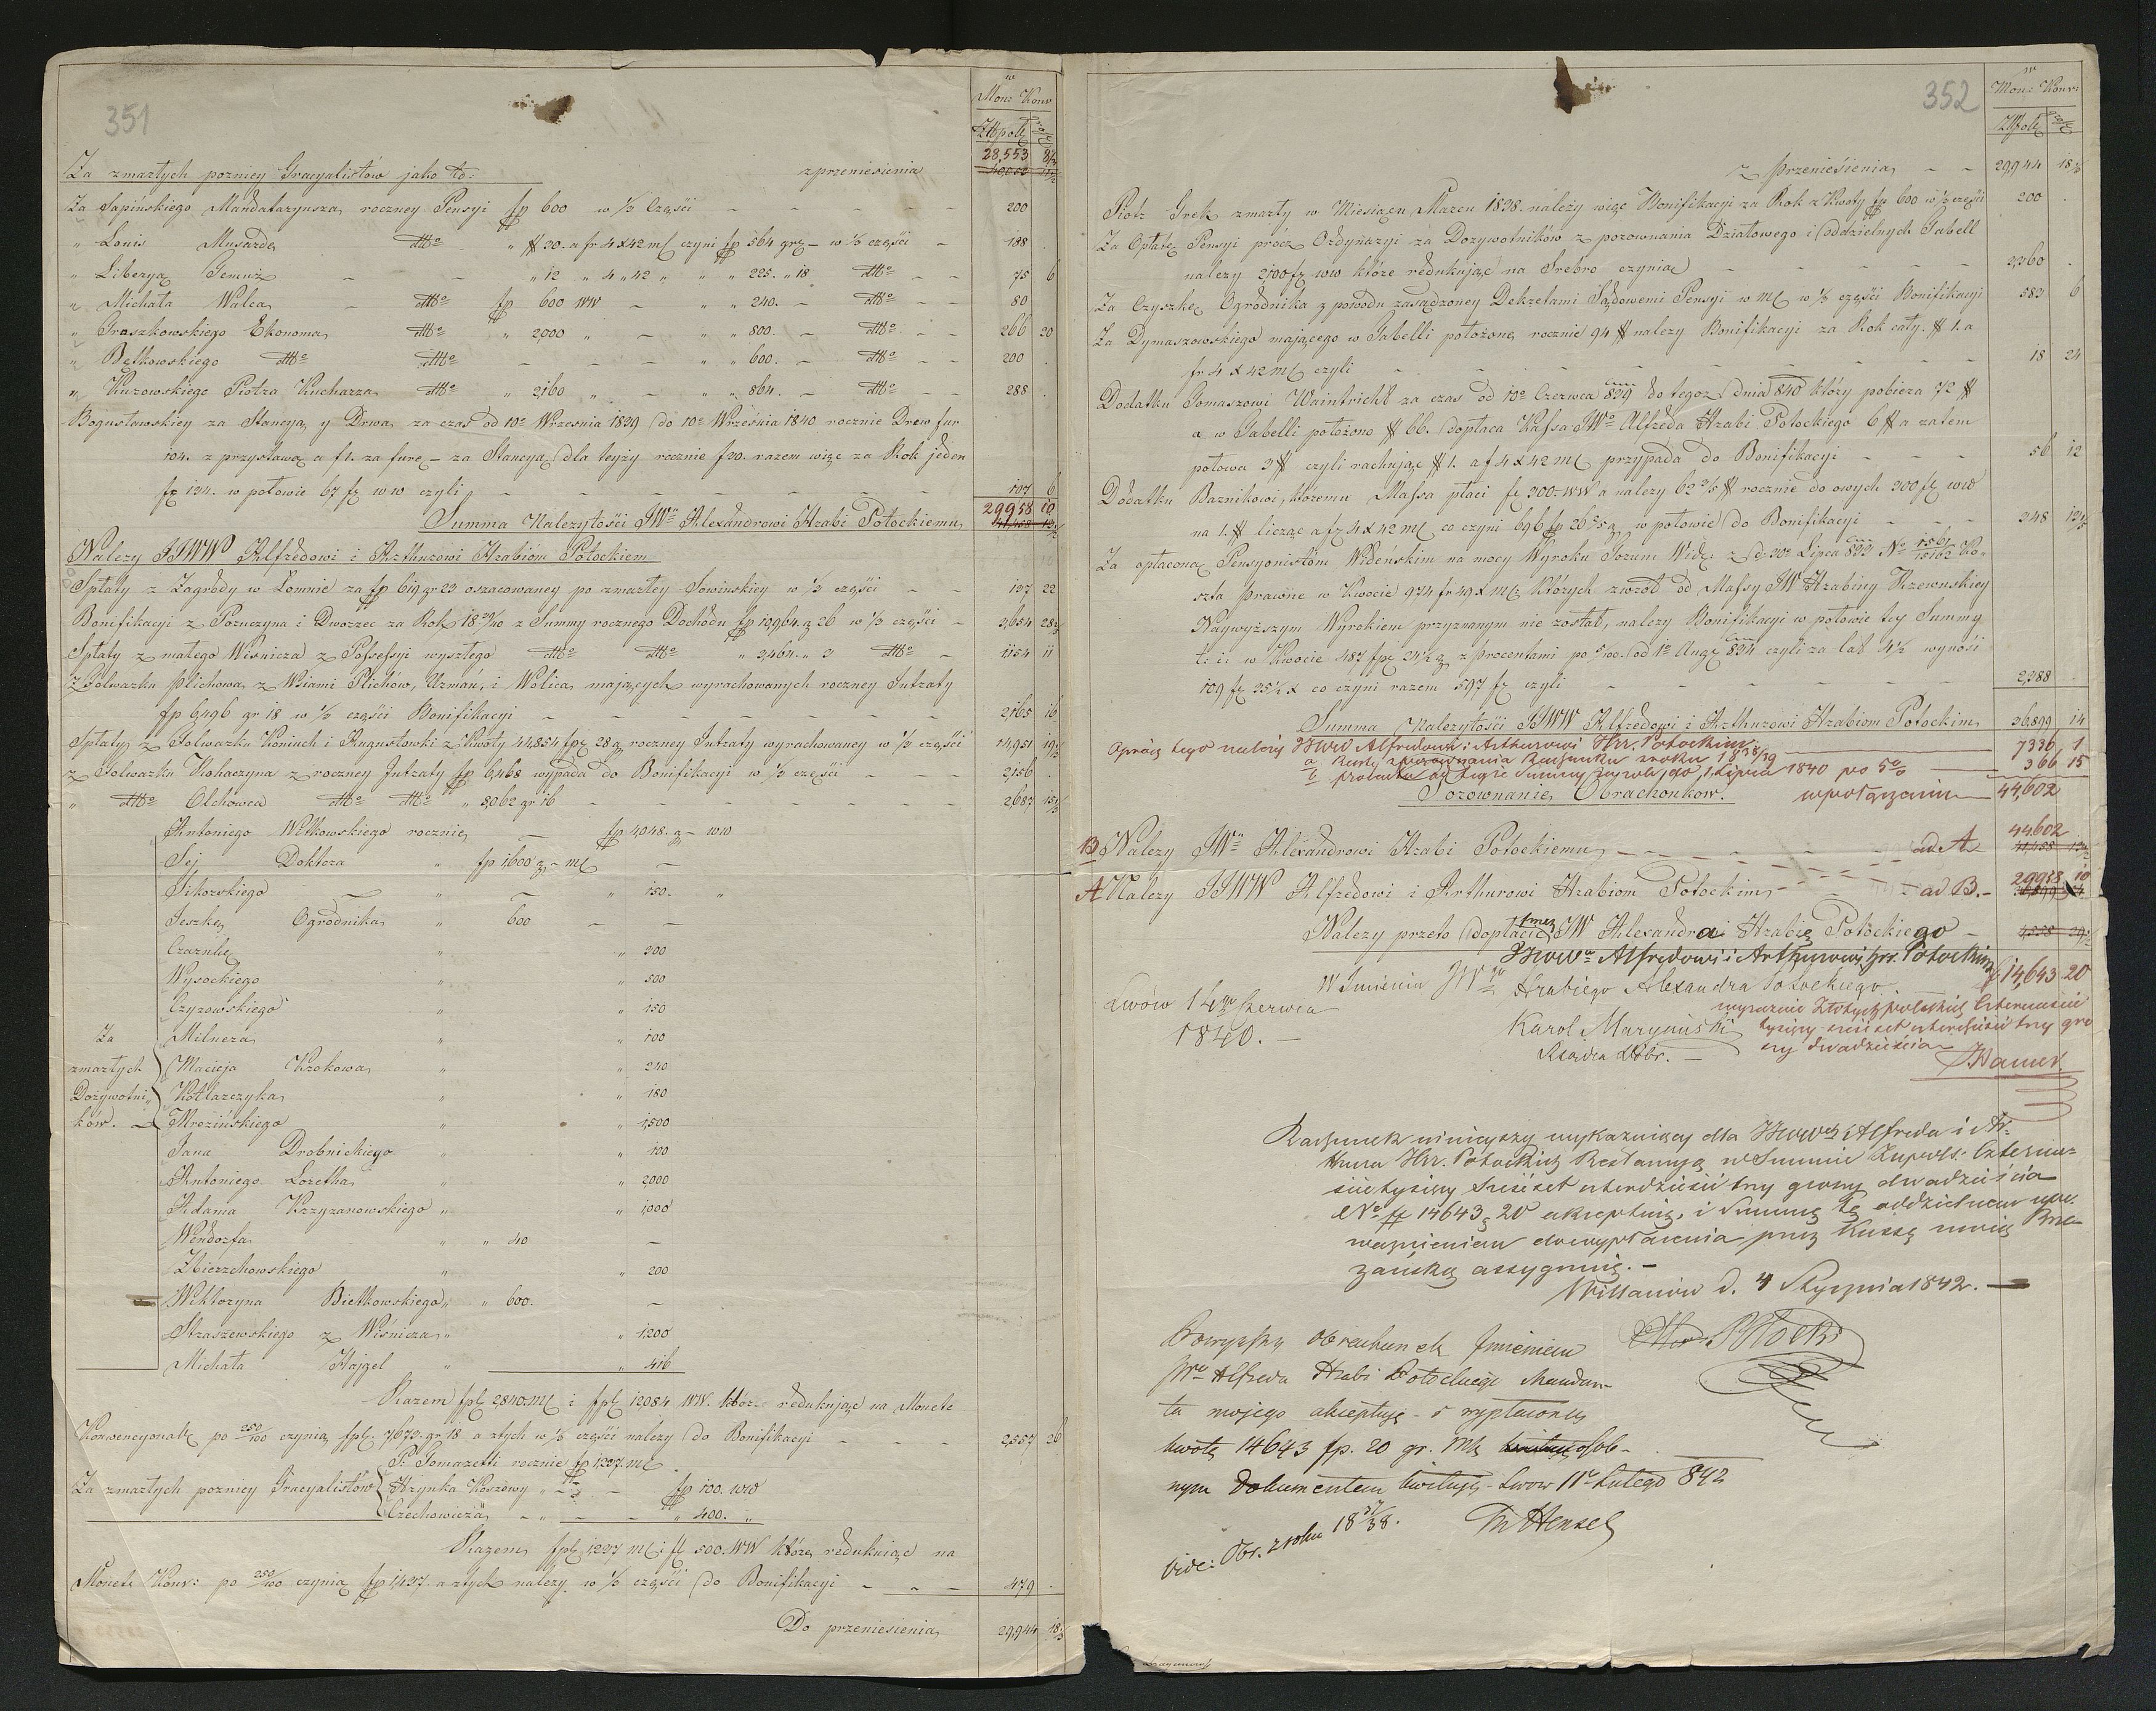 351
w
Mon: Konw
Złpols gr
28,553 8½
Za zmarłych pozniey Gracyalistów jako to: z przeniesienia
Za Sapińskiego Mandataryusza roczney Pensyi fp 600 w ⅓ Części – – – – 200
„ Louis Musarda dtto „ # 30. a fr 4 x 42 m[ czyni fp 564 grz – w ⅓ części – 188
„ Liberya – – „ 12 „ 4 „ 42 „ „ „ 225. „ 18 dtto – – 75 6
„ Michała Walca – dtto fp 600 ww – „ „ 240. – dtto – – 80
„ Graszkowskiego Ekonoma dtto „ 2000 „ – „ „ 800. – dtto – – 266 20
„ Bętkowskiego dtto dtto – – – „ „ 600. – dtto – – 200
„ Kurowskiego Piotra Kucharza dtto „ 2,160 „ – „ „ 864. – dtto – – 288
Bogusławskiey za Stancyą y Drwa za czas od 10o Wrzesnia 1839 do 10o Września 1840 rocznie Drew fur
104. z przystawą a f 1. za furę – za Stancyą dla teyży rocznie f 30. razem więc za Rok jeden
fr 134. w połowie 67 fr ww czyli – – – – – – – 107 6
Summa Należytości JWo Alexandrowi Hrabi Potockiemu 29958 10
Należy JJWW Alfredowi i Arthurowi Hrabiom Potockiem
Spłaty z Zagrody w Łomnie za fp 619 gr 23 oszacowaney po zmarłey Sowinskiey w ⅓ części – – 137 22
Bonifikacyi z Poruczyna i Dworzec za Rok 18 39/40 z Summy rocznego Dochodu fp 10,964. g 26 w ⅓ części – 3,654 28⅔
Spłaty z małego Wisnicza z Possessyi wyszłego dtto dtto „ 3,464. „ 3 dtto – 1,154 11
Z Folwarku Plichowa z Wsiami Plichów, Urmań, i Wolica mających wyrachowanych roczney Intraty
fp 6,496 gr 18 w ⅓ części Bonifikacyi – – – – – – – 2,165 16
Spłaty z Folwarku Koniuch i Augustowki z Kwoty 44,854 fp 28 g roczney Intraty wyrachowaney w ⅓ części 14,951 19⅓
z Folwarku Kohaczyna z roczney Intraty fp 6,468 wypada do Bonifikacyi w ⅓ części – – – 2,156
„ dtto Olchowca dtto dtto „ 8,062 gr 16 – – – – – – – 2,687 15⅓
Antoniego Witkowskiego rocznie – fp 4048. g – ww
Sej Doktora „ fp 1,600 g – m[ –
Sikorskiego – – „ 150. „
Jeszkę Ogrodnika „ 600 – –
„ „ 300
Wysockiego „ „ 500
Czyzowskiego „ „ 150
Za Milnera „ „ 100
zmarłych Macieja Krokowa „ „ 240
Dożywotni„ Kotlarczyka „ „ 180
ków. – Mrozińskiego „ „ 1,500
Jana Drobnickiego „ „ 100
Antoniego Loretha „ „ 2000
Adama Krzyzanowskiego „ „ 1,000
Wendorfa „ „ 40 –
Zbierzchowskiego „ „ 200
Wiktoryna Bielkowskiego „ „ 600. –
Straszewskiego z Wiśnicza „ „ 1,200
Michała Hajgel „ „ 416
Razem fpl 2,840 m[ i fpl 12084 WW. które redukując na Monetę
Konwencyonalą po 250/100 czynią fpl. 7,673. gr 18 a z tych w ⅓ części należy do Bonifikacyi – – – 2,557 26
P. Tomazetti rocznie fp 1,237. m[
Za zmarłych pozniey Gracyalistów Hrynka Koszowy „ – „ – fp 100. ww
Czechowicza – „ – – „ 400. „
Razem fpl 1,237 m[ i fl 500. WW które redukuiąc na
Monetę Konw: po 250/100 czynią fp 1,437. a z tych należy w ⅓ części do Bonifikacyi – – – 479
Do przeniesienia 29,944 18⅓
352
w
Mon: Konw:
Złpols gr
z Przeniesienia – – 29,944 18⅓
Piotr Grek zmarły w Miesiącu Marcu 1838. należy więc Bonifikacyi za Rok z Kwoty fp 600 w ⅓ części 200
Za Opłatę Pensyi prócz Ordynaryi za Dozywotników z porownania Działowego i Oddzielnych Tabell
nalezy 2,100 fr ww które redukując na Srebro czynią – – – – – 3,360
Za Czyszkę Ogrodnika z powodu zasądzoney Dekretami Sądowemi Pensyi w m[ w ⅓ części Bonifikacyi 583 6
Za Dymaszowskiego mającego w Tabelli położoną rocznie 94 # nalezy Bonifikacyi za Rok cały # 1. a
fr 4 x 42 m[ czyli – – – – – – – 18 24
Dodatku Tomaszowi Waintricht za czas od 10o Czerwca 839 do tegoz dnia 840 który pobiera 72 #
a w Tabelli położono # 66. dopłaca Kassa JWo Alfreda Hrabi Potockiego 6 # a zatem
połowa 3 # czyli rachując # 1. a f 4 x 42 m[ przypada do Bonifikacyi – – – 56 12
Dodatku Baznikowi, któremu Massa płaci fr 300. WW a nalezy 62 3/5 # rocznie do owych 300 fr ww
na 1. # licząc a fr 4 x 42 m[ co czyni 696 fp 26 2/5 g w połowie do Bonifikacyi – – – 348 13 1/5
Za opłaconą Pensyonistom Widenskim na mocy Wyroku Forum Wide: z d: 30o Lipca 833 No
szta prawne w Kwocie 974 fr 49 x m[ których zwrot od Massy JW Hrabiny Rzewuskiey
Naywyższym Wyrokiem przyznanym nie został, nalezy Bonifikacyi w połowie tey Summy
t: i: w Kwocie 487 fr 24½ z procentami po 5/100. od 1o Aug: 834 czyli za lat 4½ wynosi
109 fr 35½ x co czyni razem 597 fr czyli – – – – – 2,388
Summa Należytości JJWW Alfredowi i Arthurowi Hrabiom Potockim 36,899 14
Oprócz tego należy JWW Alfredowi i Arthurowi Hr. Potockim:
a. Reszty z porównania Rachunku z roku 1838/39 7336 1
b. procentu od tejże Summy do 1. Lipca 1840 po 5% 366 15
Porównanie Obrachonkow. w połączeniu – 44,602
44602
B Nalezy JWo Alexandrowi Hrabi Potockiemu – – – ad A
29958 10
A Nalezy JJWW Alfredowi i Arthurowi Hrabiom Potockim – – – ad B.
Nalezy przeto dopłacić przez JW Alexandra Hrabię Potockiego –
JWWu Alfredowi i Arthurowi Hr. Potockim f 14643 20
W Imieniu JWgo Hrabiego Alexandra Potockiego.
Lwów 14go Czerwca
1840. –
Karol Maryniski
Rządca Dobr. –
wyraznie Złotych polskich Czternaście
tysięcy sześćset czterdzieści trzy gro
szy dwadzieścia
Rachunek niniejszy wykazujący dla JWWch Alfreda i Ar-
thura Hr. Potockich Restancyą w Summie Złpols. Czterna-
ście tysięcy sześćset czterdzieści trzy groszy dwadzieścia
No fp 14643 g 20 akceptuię, i Summę tę oddzielnem upo-
ważnieniem do wypłacenia przez Kassę moią Brze-
żańską assygnuię. –
Willanów d. 4 Stycznia 1842. –
Potocki
Powyższy obrachunek Imieniem
JWo Alfreda Hrabi Potockiego Mandan-
ta mojego akceptuję – i wypłaconą
kwotę 14643 fp. 20 gr. Mk osob-
nym Dokumentem kwituję – Lwow 11o Lutego 842
Hensel
Vide: Obr. z roku 18 37/38.